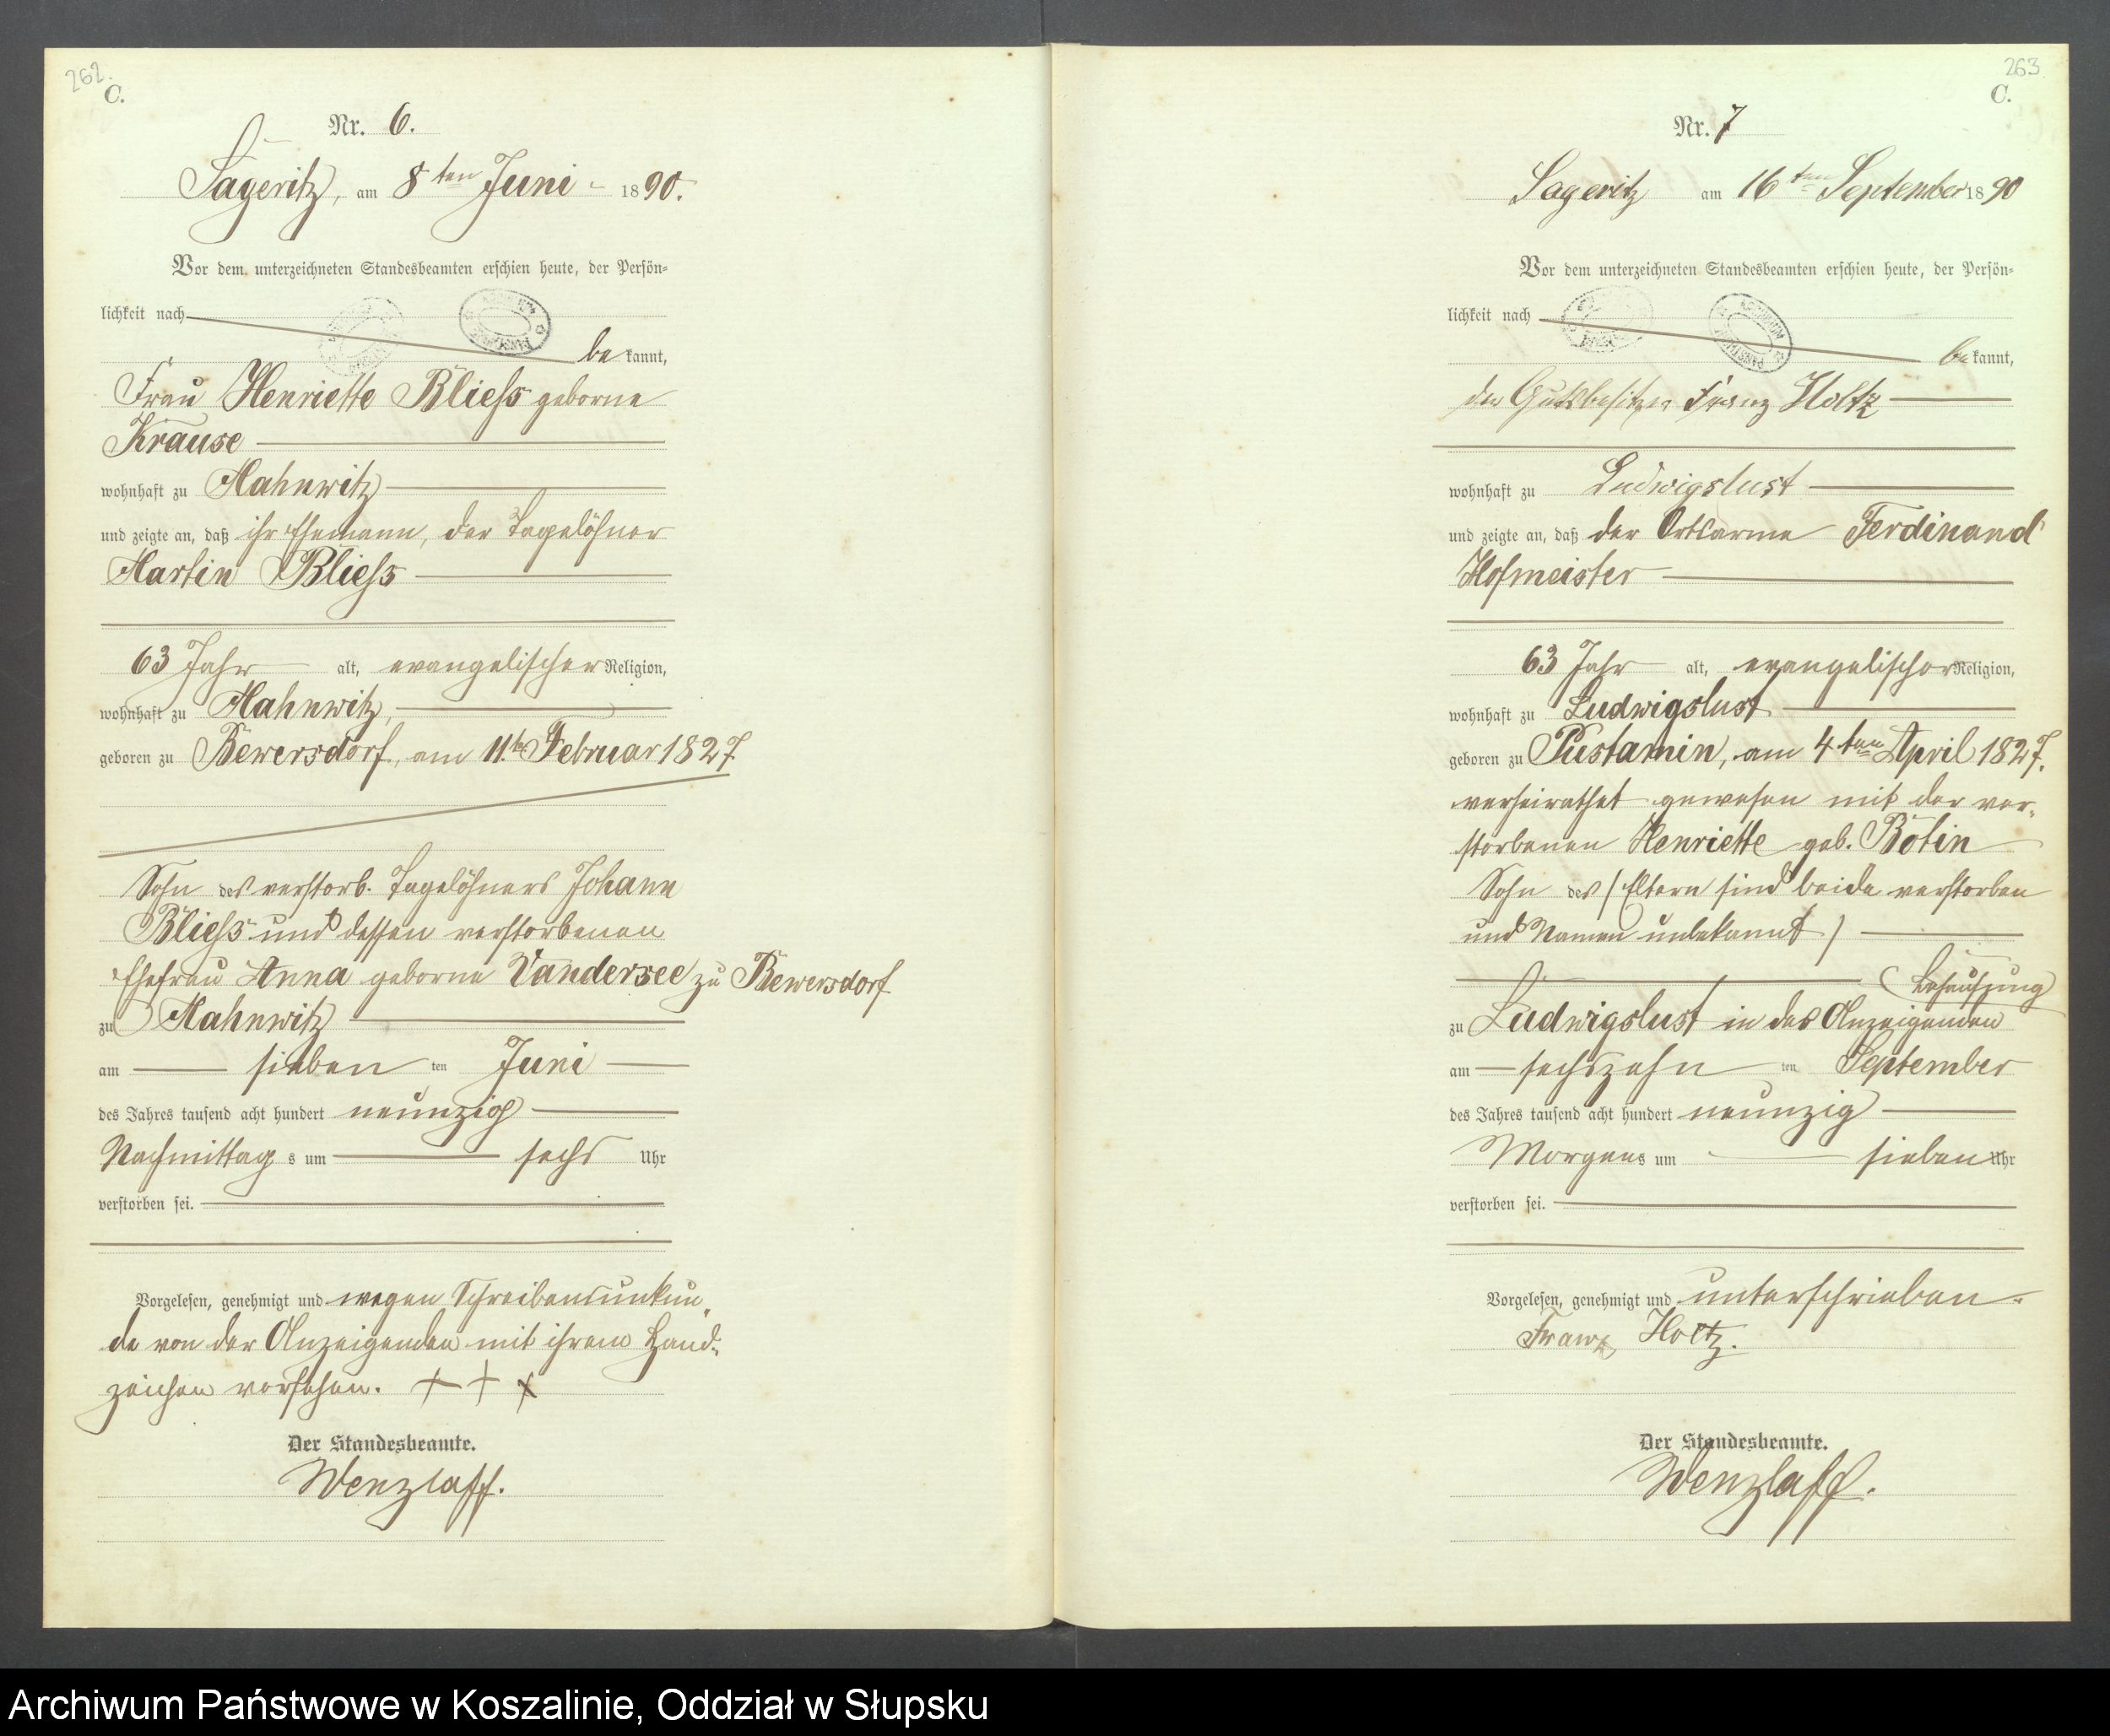 262.
C.
Nr. 6.
Sageritz, am 8ten Juni 1890.
Vor dem unterzeichneten Standesbeamten erschien heute, der Persön-
lichkeit nach
bekannt,
Frau Henriette Bliess geborne
Krause
wohnhaft zu Mahnwitz
und zeigte an, daß ihr Ehemann, der Tagelöhner
Martin Bliess
63 Jahr alt, evangelischer Religion,
wohnhaft zu Mahnwitz,
geboren zu Bewersdorf, am 11ten Februar 1827.
Sohn des verstorb. Tagelöhners Johann
Bliess und dessen verstorbenen
Ehefrau Anna geborne Vandersee zu Bewersdorf
zu Mahnwitz
am sieben ten Juni
des Jahres tausend acht hundert neunzig
Nachmittag s um sechs Uhr
verstorben sei.
Vorgelesen, genehmigt und wegen Schreibensunkun-
de von der Anzeigenden mit ihrem Hand-
zeichen versehen. + + +
Der Standesbeamte.
Wenzlaff.
263
C.
Nr. 7
Sageritz am 16ten September 1890
Vor dem unterzeichneten Standesbeamten erschien heute, der Persön-
lichkeit nach
bekannt,
der Gutsbesitzer Franz Holtz
wohnhaft zu Ludwigslust
und zeigte an, daß der Ortsarme Ferdinand
Hofmeister
63 Jahr alt, evangelischer Religion,
wohnhaft zu Ludwigslust
geboren zu Pustamin, am 4ten April 1827.
verheirathet gewesen mit der ver-
storbenen Henriette geb. Botin
Sohn des (Eltern sind beide verstorben
und Namen unbekannt)
(Behausung
zu Ludwigslust in des Anzeigenden
am sechszehn ten September
des Jahres tausend acht hundert neunzig
Morgens um sieben Uhr
verstorben sei.
Vorgelesen, genehmigt und unterschrieben.
Franz Holtz.
Der Standesbeamte.
Wenzlaff.
Archiwum Państwowe w Koszalinie, Oddział w Słupsku